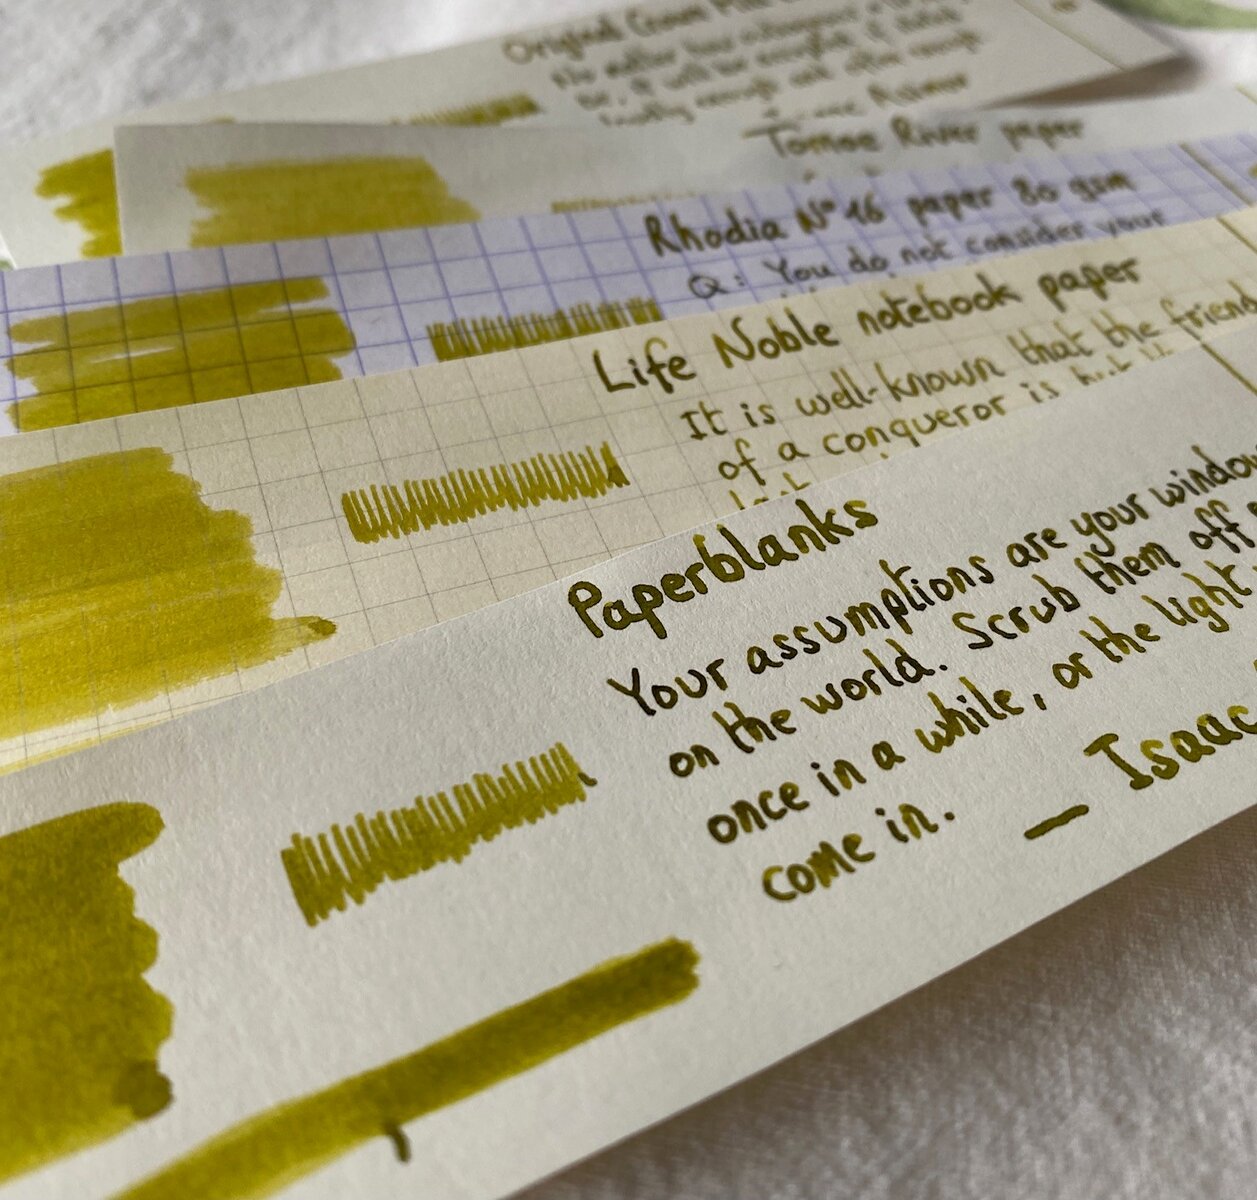 Original Crown Mill
No matter how
be, it will be accepted if
firmly enough and often enough
Asimov
Tomoe River paper
Rhodia N° 16 paper 80 gsm
Q: You do not consider your
Life Noble notebook paper
It is well-known that the friend
of a conqueror is but
last
Paperblanks
Your assumptions are your window
on the world. Scrub them off
once in a while, or the light
come in.
— Isaac